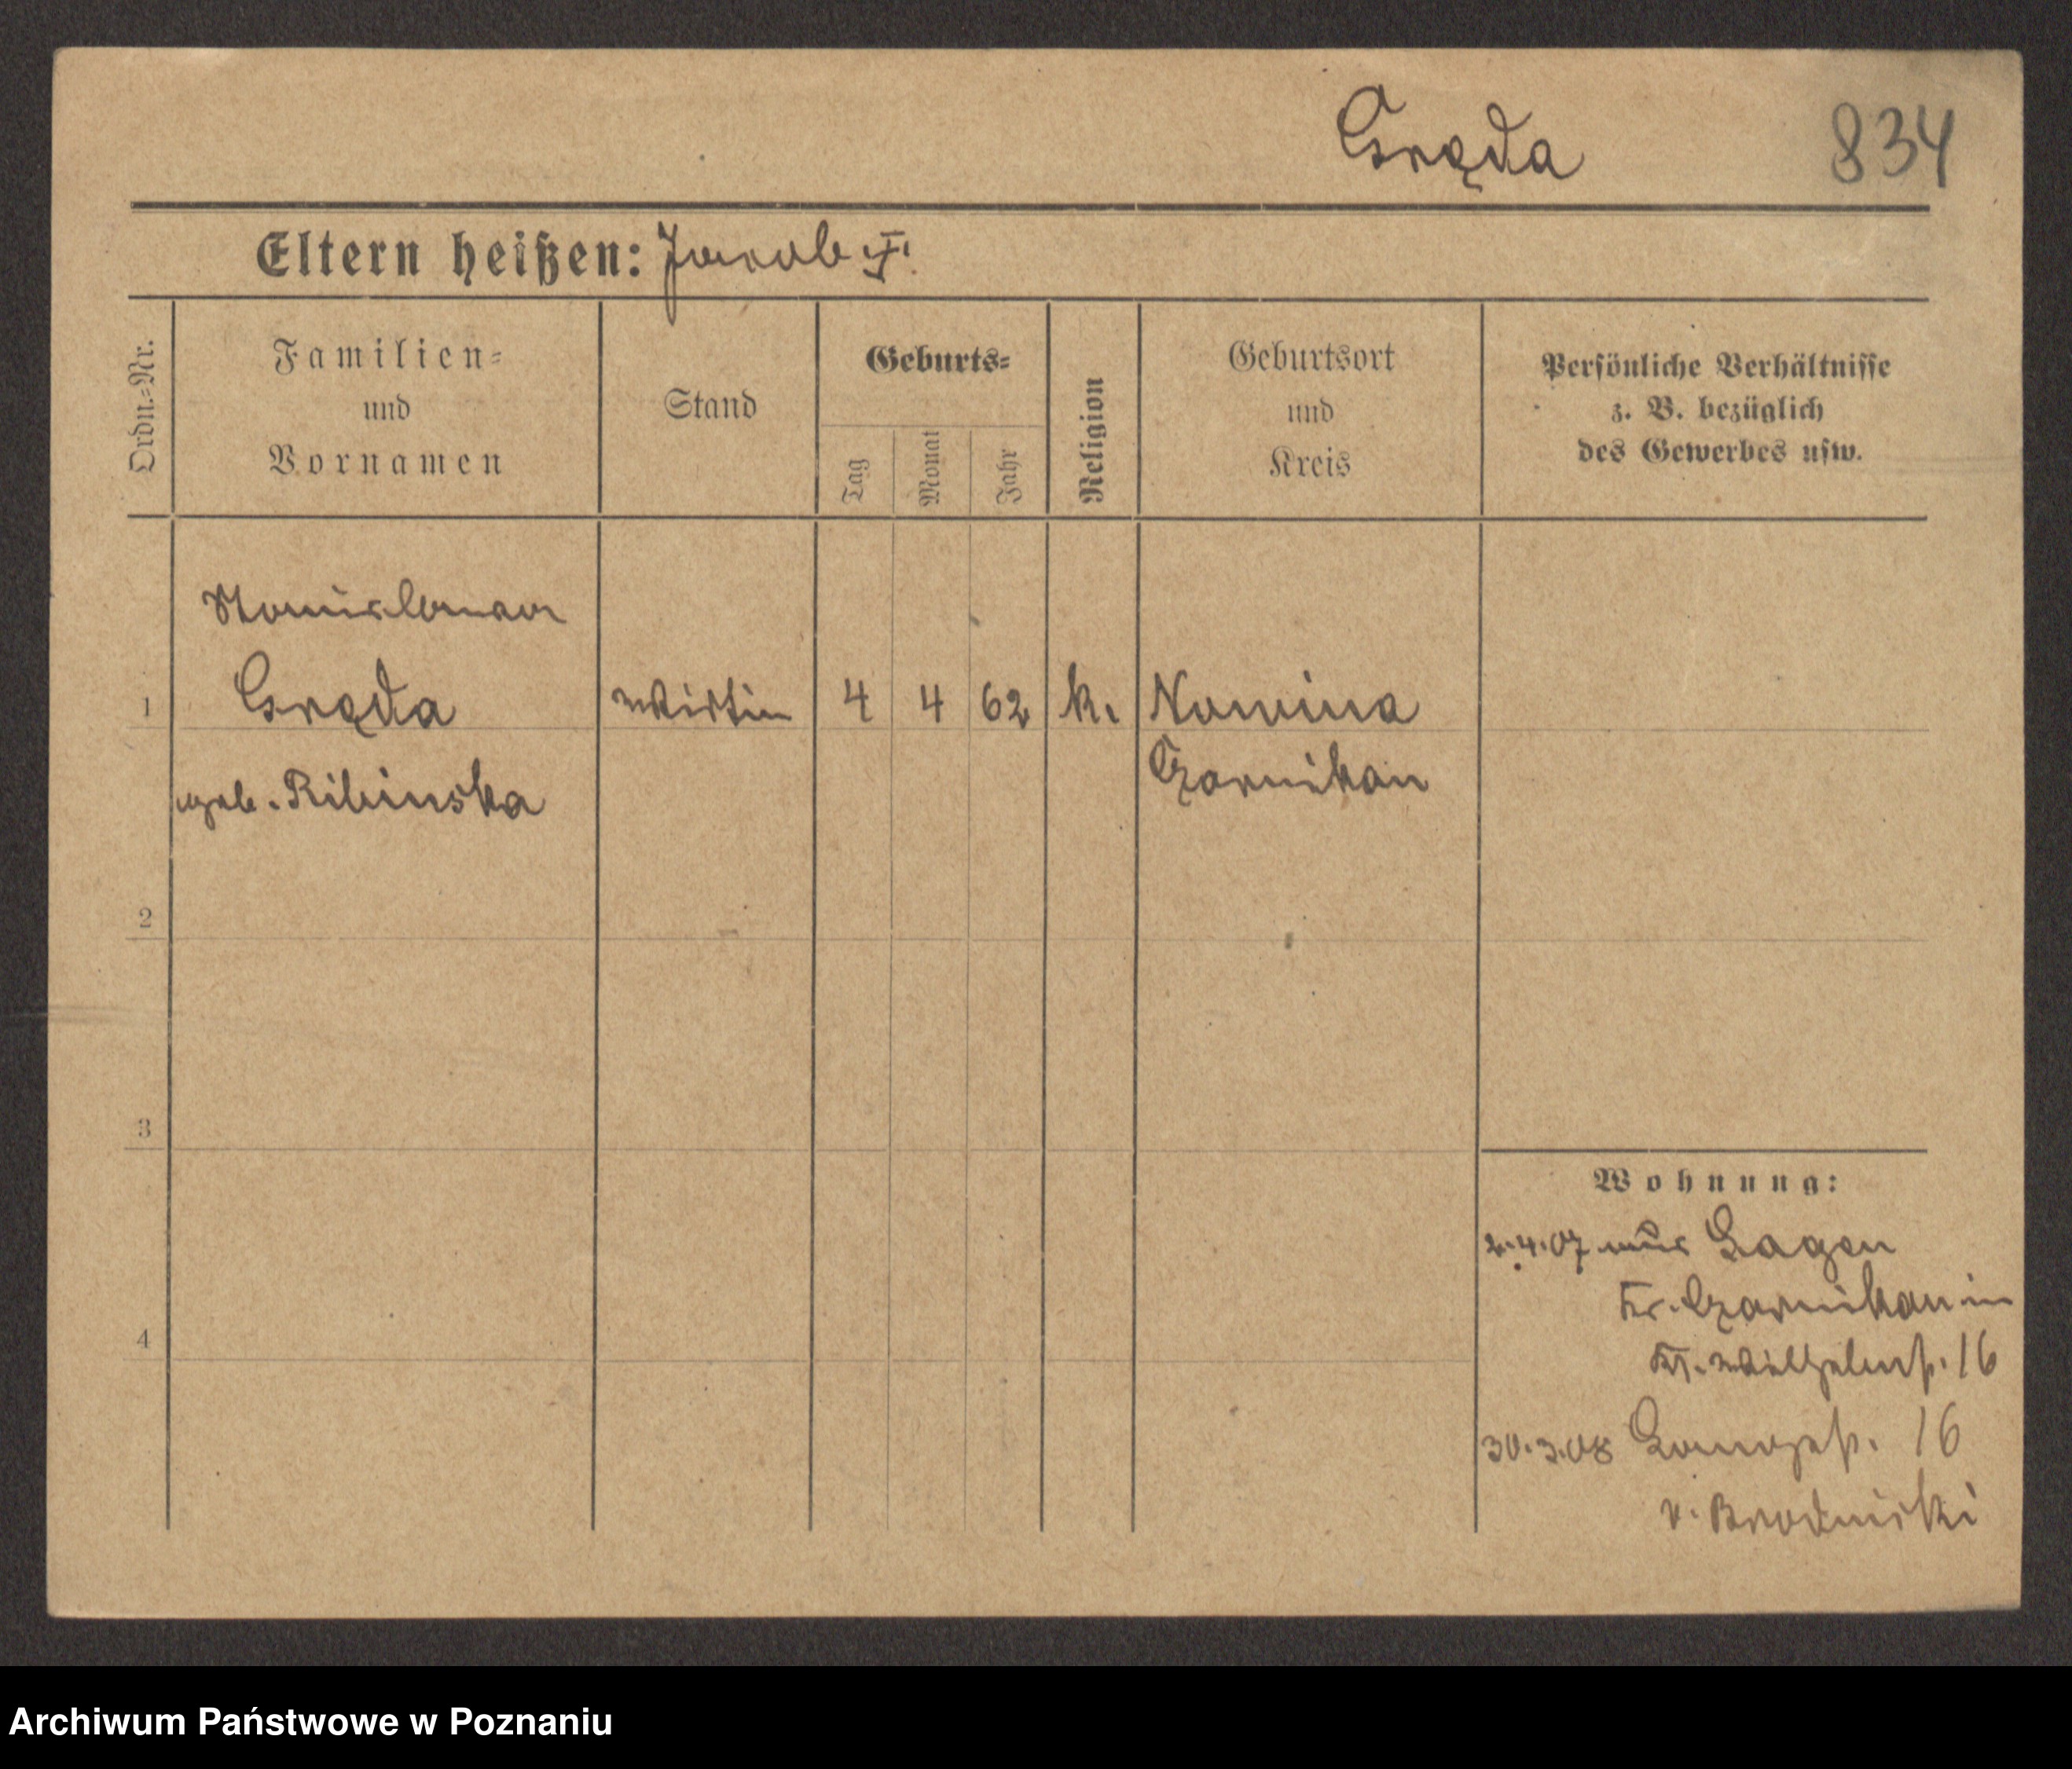 Gręda 834
Eltern heißen: Jacob F.
Ordn.-Nr.
Familien-
und
Vornamen
Stand
Geburts-
Tag
Monat
Jahr
Religion
Geburtsort
und
Kreis
Persönliche Verhältnisse
z. B. bezüglich
des Gewerbes usw.
Stanislawa
1 Gręda Wirtin 4 4 62 k. Nowina
Czarnikau
geb. Ribinska
2
3
4
Wohnung:
2.4.07 aus Gagen
Kr. Czarnikau in
Kl. Wilhelmst. 16
30.3.08 16
v. Brodniski